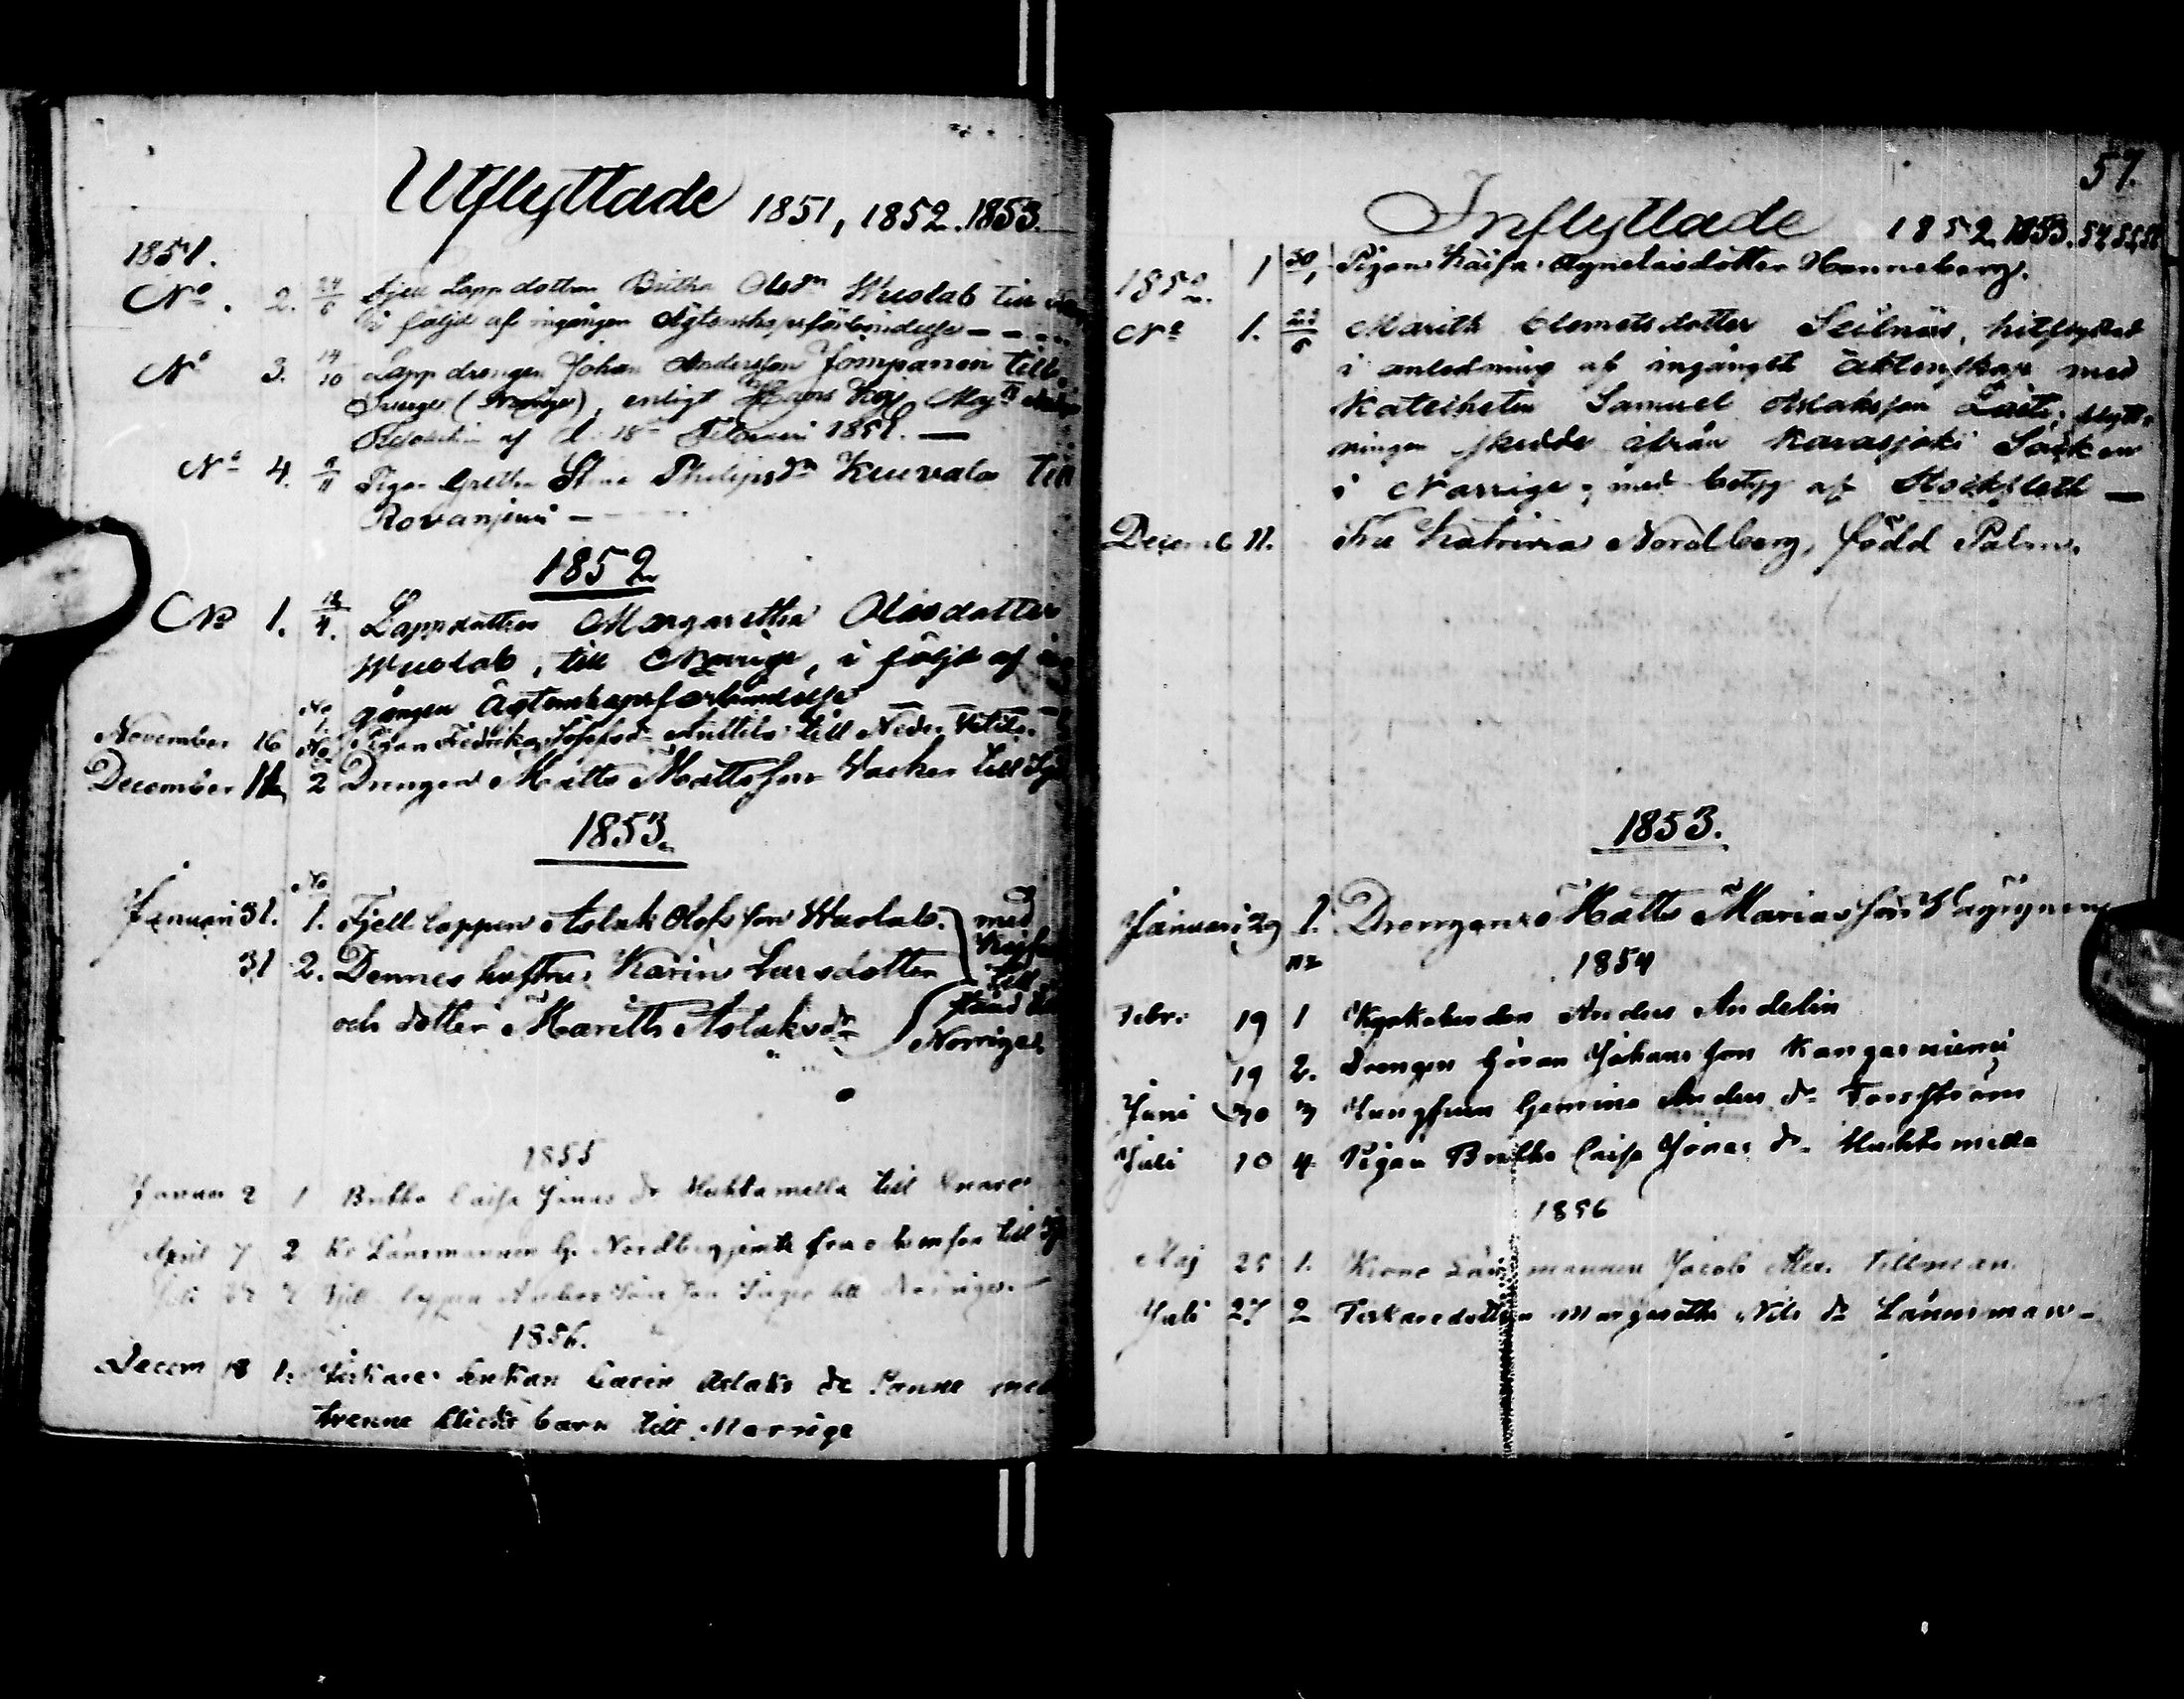 Utflyttade 1851, 1852. 1853.
1851.
No. 2. 24/6 Fjell Lappdottren Britha Olsdr Wuolab till
i följd af ingången Ägtenskapsförbindelse — — —
No 3. 14/10 Lappdrengen Johan Andersson Jomppanen till
Sverge (Norrige), enligt Hans Kejs. Maj:ts
Resolution af d. 18de Februari 1851. —
No 4. 9/11 Pigan Gretha Stina Philipsdr Kuuvala till
Rovaniemi —
1852
No 1. Lappdottren Margaretha Olasdotter
Wuolab, till Norrige, i följd af in
gången Ägtenskapsförbindelse — — —
November 16 No 1. Pigan Fredrika Josefsdr Anttila till Neder Vetil.
December 12 No 2 Drengen Matts Mattsson Vacker till
1853.
Januari 31. No 1. Fjell lappen Aslak Olofsson Wuolab. med
31 2. Dennes hustru Karin Larsdotter
och dotter Marith Aslaksdr
till
Norriges
1855
Januar 2 1 Britha Caisa Jonas dr Muhkamella till Enare
April 7 2 Kr Länsmannen G. Nordberg jemte fru och son till
Juli 2 Fjell lappen Anders till Norriges. —
1856.
Decem 18 1. Fiskare enkan Carin Aslaks dr Panne med
trenne Flickebarn till Norrige
57.
Inflyttade 1852. 1853. 54, 55, 56
1852. 1 30/1 Pigan Kaisa Agnetasdotter Hanneberg.
No 1. Marith Clemetsdotter Seilnäs, hitflyttad
i anledning af ingånget äktenskap med
Katecheten Samuel Aslaksson Laiti; flytt-
ningen skedde ifrån Karasjoki Socken
i Norrige; med betyg af Stockfleth —
Decemb 11. Fru Katrina Nordberg, född Palm.
1853.
Januari 29 1. Drengen Matts Mariasson Väyrynen
No 1854
Febr. 19 1 Kyrkoherden Anders Andelin
19 2. Drengen Göran Johansson Kangasniemi
Juni 30 3 Jungfrun Gemina Anders dr Forsström
Juli 10 4 Pigan Britha Caisa Jonas dr Muhkamella
1856
Maj 25 1. Krono Länsmannen Jacob Alex. Tillman.
Juli 27 2 Fiskaredottren Margaretha Nils dr Länsman.